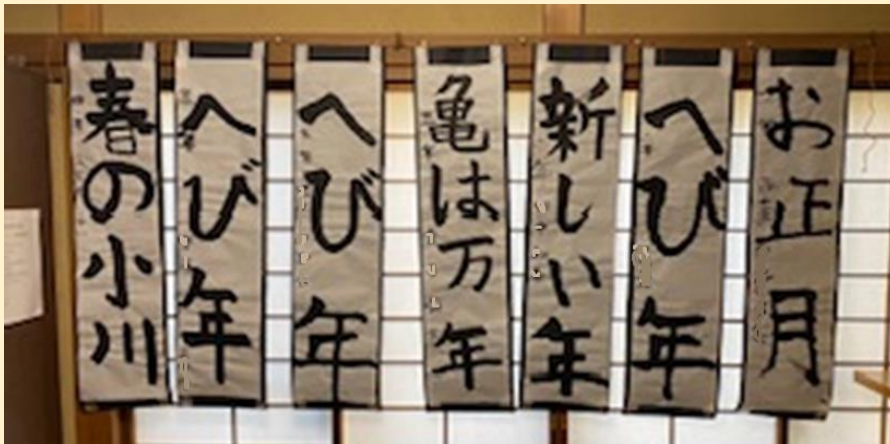 お正月
へび年
新しい年
亀は万年
へび年
へび年
春の小川